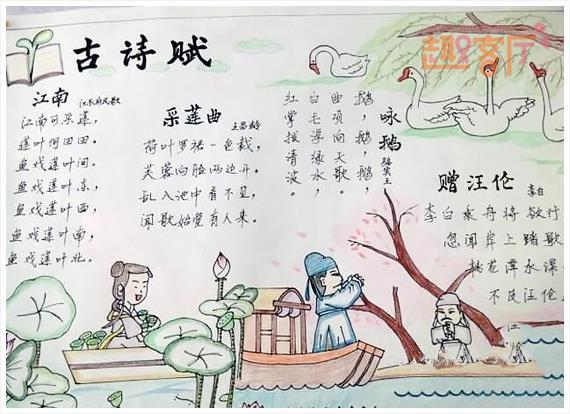 趣客厅
古诗赋
江南 汉乐府民歌
江南可采莲，
莲叶何田田。
鱼戏莲叶间。
鱼戏莲叶东，
鱼戏莲叶西，
鱼戏莲叶南，
鱼戏莲叶北。
采莲曲
王昌龄
荷叶罗裙一色裁，
芙蓉向脸两边开。
乱入池中看不见，
闻歌始觉有人来。
咏鹅
骆宾王
鹅，鹅，鹅，
曲项向天歌，
白毛浮绿水，
红掌拨清波。
赠汪伦
李白
李白乘舟将欲行
忽闻岸上踏歌
桃花潭水深
不及汪伦